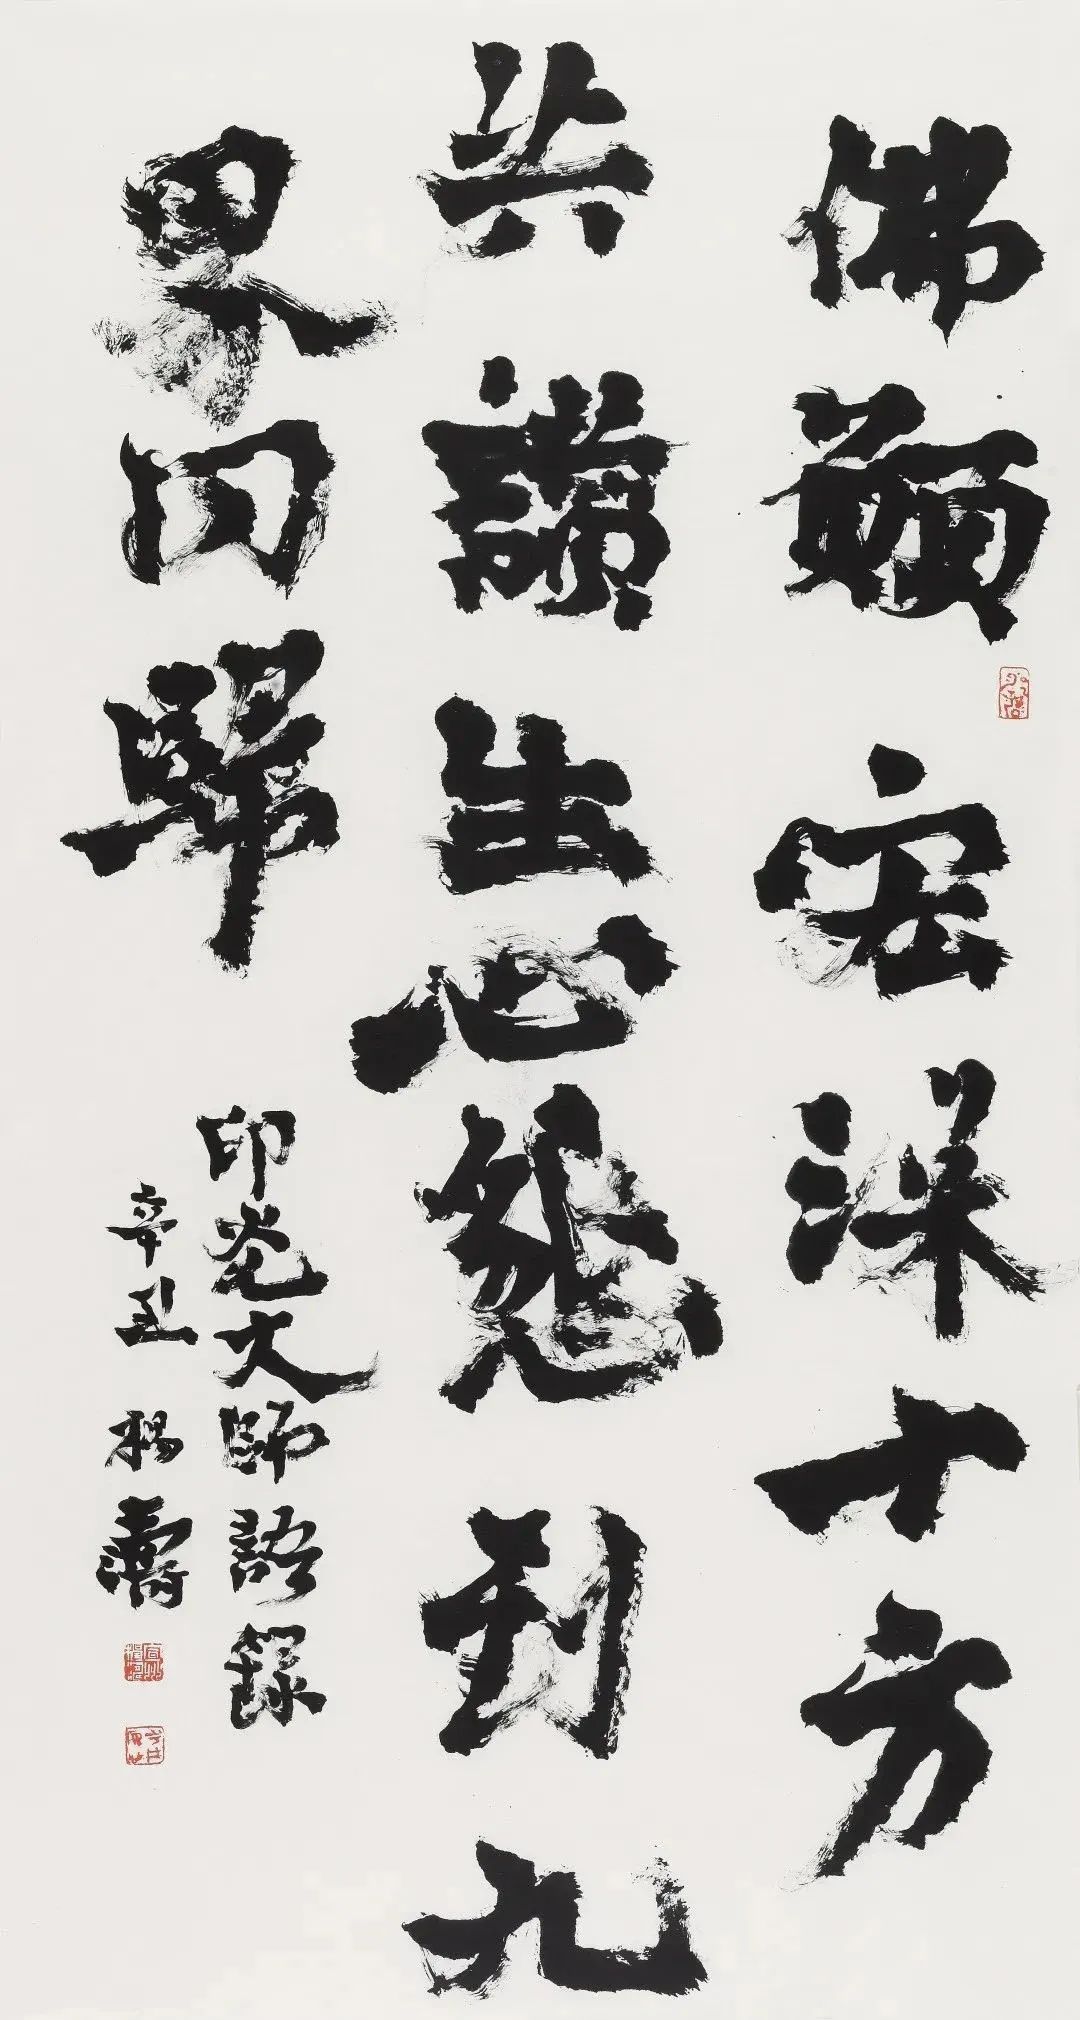 佛願宏深十方
共讚生心懇到九
界同歸
印光大師語錄
辛丑 楊濤